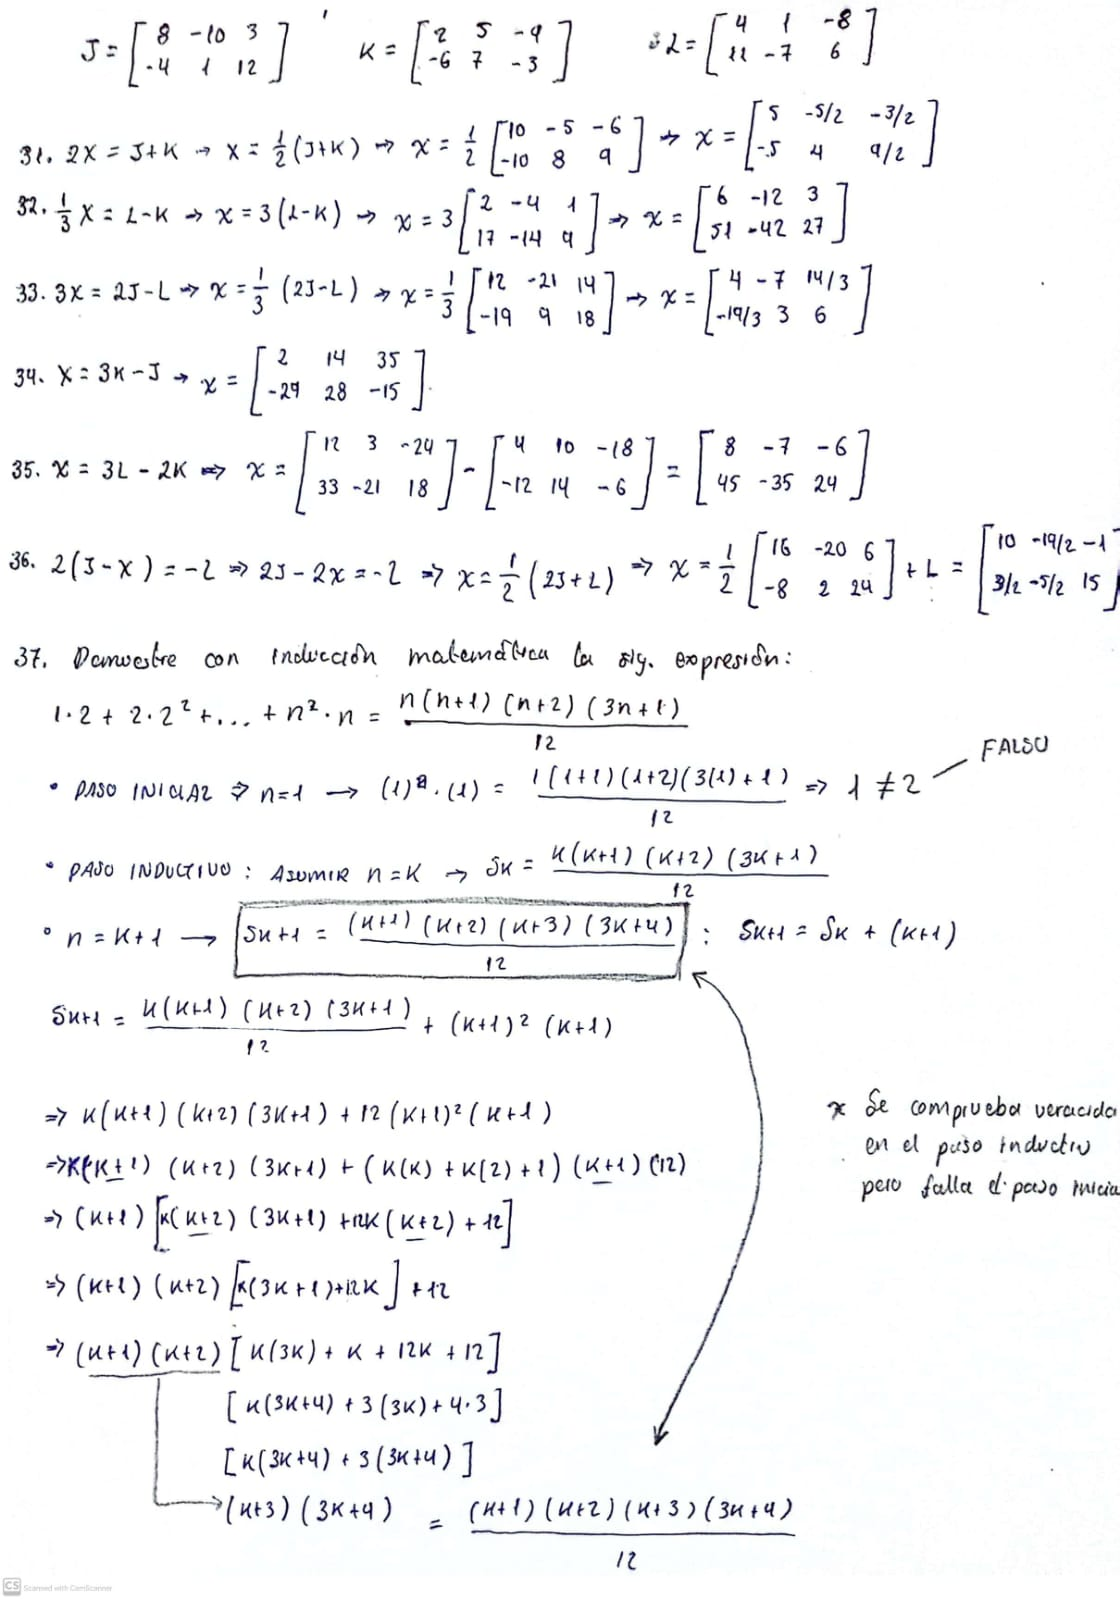 J = [ 8 -10 3 ; -4 1 12 ]   K = [ 2 5 -9 ; -6 7 -3 ]   ; L = [ 4 1 -8 ; 11 -7 6 ]
31. 2X = J+K → X = 1/2 (J+K) → X = 1/2 [ 10 -5 -6 ; -10 8 9 ] → X = [ 5 -5/2 -3/2 ; -5 4 9/2 ]
32. 1/3 X = L-K → X = 3(L-K) → X = 3 [ 2 -4 1 ; 17 -14 9 ] → X = [ 6 -12 3 ; 51 -42 27 ]
33. 3X = 2J-L → X = 1/3 (2J-L) → X = 1/3 [ 12 -21 14 ; -19 9 18 ] → X = [ 4 -7 14/3 ; -19/3 3 6 ]
34. X = 3K-J → X = [ 2 14 35 ; -29 28 -15 ].
35. X = 3L - 2K => X = [ 12 3 -24 ; 33 -21 18 ] - [ 4 10 -18 ; -12 14 -6 ] = [ 8 -7 -6 ; 45 -35 24 ]
36. 2(J-X) = -L => 2J - 2X = -L => X = 1/2 (2J+L) => X = 1/2 [ 16 -20 6 ; -8 2 24 ] + L = [ 10 -19/2 -1 ; 3/2 -5/2 15 ]
37. Demuestre con inducción matemática la sig. expresión:
1·2 + 2·2² + ... + n²·n = n(n+1)(n+2)(3n+1) / 12
• PASO INICIAL => n=1 → (1)²·(1) = 1(1+1)(1+2)(3(1)+1) / 12 => 1 ≠ 2 — FALSO
• PASO INDUCTIVO: ASUMIR n=K → SK = K(K+1)(K+2)(3K+1) / 12
• n = K+1 → SK+1 = (K+1)(K+2)(K+3)(3K+4) / 12 : SK+1 = SK + (K+1)
SK+1 = K(K+1)(K+2)(3K+1) / 12 + (K+1)²(K+1)
=> K(K+1)(K+2)(3K+1) + 12(K+1)²(K+1)
=> K(K+1)(K+2)(3K+1) + (K(K) + K(2) + 1)(K+1)(12)
=> (K+1)[K(K+2)(3K+1) + 12K(K+2) + 12]
=> (K+1)(K+2)[K(3K+1)+12K] + 12
=> (K+1)(K+2)[K(3K) + K + 12K + 12]
[K(3K+4) + 3(3K) + 4·3]
[K(3K+4) + 3(3K+4)]
(K+3)(3K+4) = (K+1)(K+2)(K+3)(3K+4) / 12
x Se comprueba veracida
en el paso inductiv
pero falla el paso inicia
CS Scanned with CamScanner